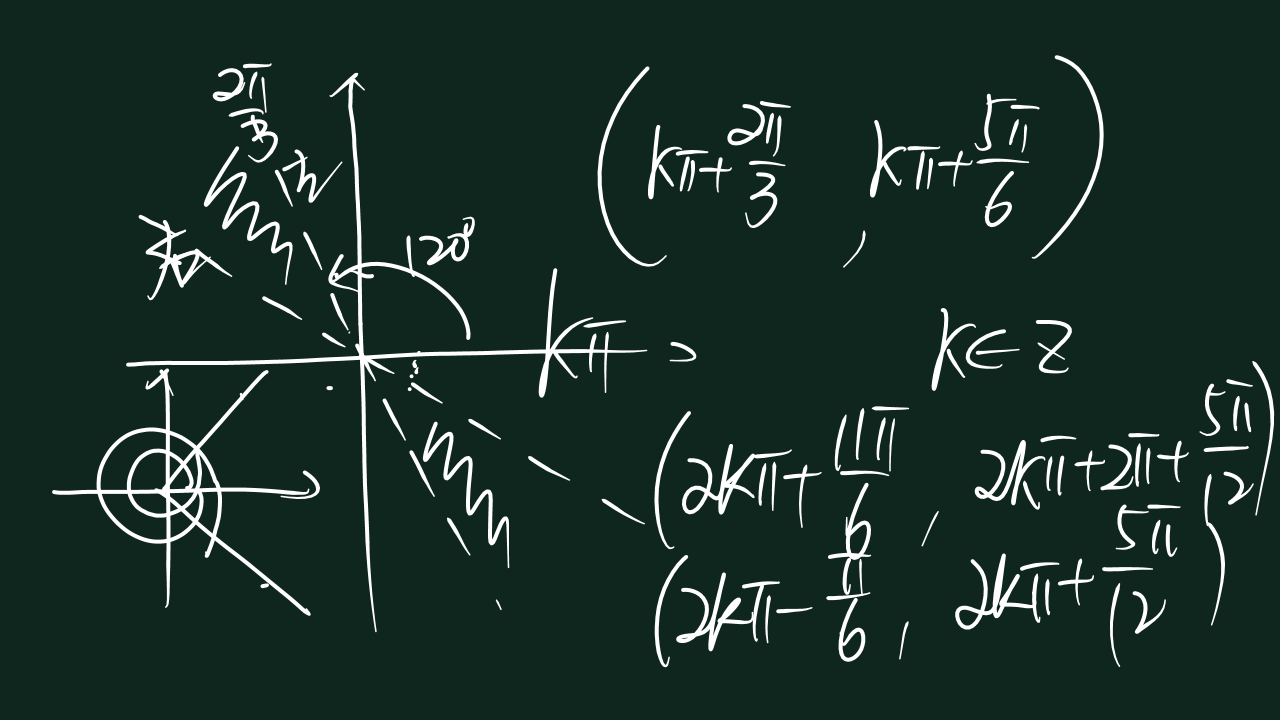 2π/3
120°
kπ
(kπ+2π/3 , kπ+5π/6)
k∈Z
(2kπ+11π/6 , 2kπ+2π+5π/12)
(2kπ-π/6 , 2kπ+5π/12)